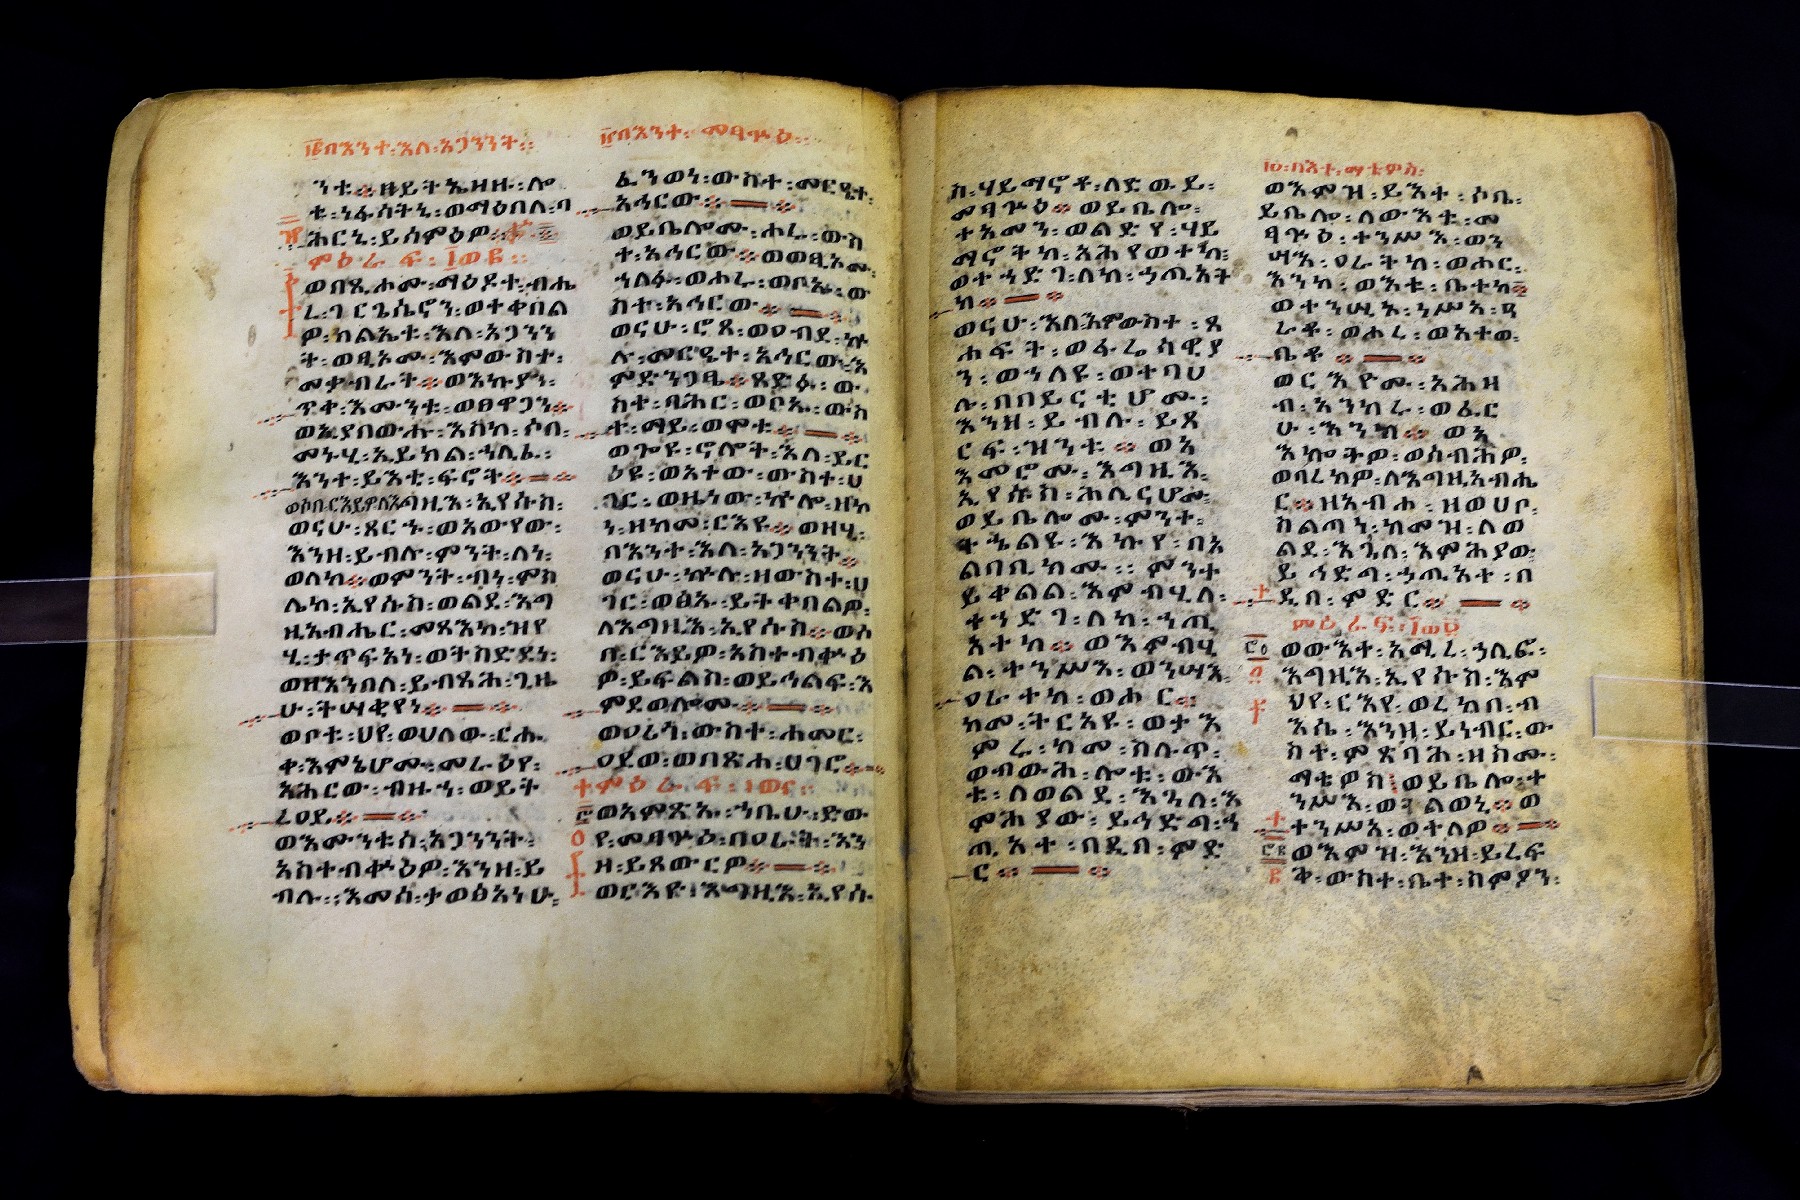 ፲፪በእንተ፡እለ፡አጋንንት።
ንቱ፡ዘይትኤዘዙ፡ሎ
ቱ፡ነፋሳትኒ፡ወማዕበለ፡ባ
ሕርኒ፡ይሰምዕዎ።
ምዕራፍ፡
ወበጺሖሙ፡ማዕዶተ፡ብሔ
ረ፡ጌርጌሴኖን፡ወተቀበል
ዎ፡ክልኤቱ፡እለ፡አጋንን
ት፡ወፂኦሙ፡እምውስተ፡
መቃብራት።ወእኩያነ፡
ጥቀ፡እሙንቱ፡ወፀዋጋን።
ወኢያበውሑ፡እስከ፡ሶበ፡
መኑሂ፡ኢይክል፡ኀሊፈ፡
እንተ፡ይእቲ፡ፍኖት።
ወሶበ፡ርእይዎ፡ለእግዚእ፡ኢየሱስ፡
ወናሁ፡ጸርኁ፡ወአውየው፡
እንዘ፡ይብሉ፡ምንት፡ለነ፡
ወለከ።ወምንት፡ብነ፡ምስ
ሌከ፡ኢየሱስ፡ወልደ፡እግ
ዚአብሔር፡መጻእከ፡ዝየ
ሂ፡ታጥፍአነ፡ወትስድደነ፡
ወዘእንበለ፡ይብጻሕ፡ጊዜ
ሁ፡ትሣቂየነ።
ወቦቱ፡ህየ፡ወሀለው፡ርሑ
ቀ፡እምኔሆሙ፡መራዕየ፡
አሕርው፡ብዙኃ፡ወይት
ረዐይ።
ወእሙንቱሰ፡አጋንንት፡
አስተብቍዕዎ፡እንዘ፡ይ
ብሉ፡እመሰ፡ታወፅአነሁ፡
በእንተ፡መፃጕዕ።
ፈንወነ፡ውስተ፡መርዔተ፡
አኅርው።
ወይቤሎሙ፡ሖሩ፡ውስ
ተ፡አኅርው።ወወፂኦሙ፡
ኀለፉ፡ወሖሩ፡ወቦኡ፡ው
ስተ፡አኅርው።
ወናሁ፡ሮጸ፡ወዐብደ፡ኵ
ሉ፡መርዔተ፡አኅርው፡እ
ምድንጋፄ።ጸድፉ፡ው
ስተ፡ባሕር፡ወቦኡ፡ውስ
ተ፡ማይ፡ወሞቱ።
ወጐዩ፡ኖሎት፡እለ፡ይር
ዕዩ፡ወአተው፡ውስተ፡ሀ
ገር፡ወዜነው፡ኵሎ፡ዘኮ
ነ፡ዘከመ፡ርእዩ።ወዘሂ፡
በእንተ፡እለ፡አጋንንት።
ወናሁ፡ኵሉ፡ዘውስተ፡ሀ
ገር፡ወፅኡ፡ይትቀበልዎ፡
ለእግዚእ፡ኢየሱስ።ወሶ
በ፡ርእይዎ፡አስተብቍዕ
ዎ፡ይፍልስ፡ወይኅልፍ፡እ
ምደወሎሙ።
ወዐሪጎ፡ውስተ፡ሐመር፡
ዐደወ፡ወበጽሐ፡ሀገሮ።
ምዕራፍ፡
ወአምጽኡ፡ኀቤሁ፡ድው
የ፡መፃጕዕ፡በዐራት፡እን
ዘ፡ይጸውርዎ።
ወርእዮ፡እግዚእ፡ኢየሱ
ስ፡ሃይማኖቶ፡ለድውይ፡
መፃጕዕ።ወይቤሎ፡
ተአመን፡ወልድየ፡ሃይ
ማኖትከ፡አሕየወተከ፡
ወተኀድገ፡ለከ፡ኃጢአት
ከ።
ወናሁ፡እለ፡እምውስተ፡ጸ
ሐፍት፡ወፈሪሳዊያ
ን፡ወኀለዩ፡ወተባህ
ሉ፡በበይናቲሆሙ፡
እንዘ፡ይብሉ፡ይጸ
ርፍ፡ዝንቱ።ወአ
እመሮሙ፡እግዚእ፡
ኢየሱስ፡ሕሊናሆሙ፡
ወይቤሎሙ፡ምንተ፡
ተኄልዩ፡እኩየ፡በአ
ልባቢክሙ።ምንተ
ይቀልል፡እምብሂለ፡
ተኀድገ፡ለከ፡ኃጢ
አተከ።ወእምብሂ
ል፡ተንሥእ፡ወንሣእ፡
ዐራተከ፡ወሖር።
ከመ፡ትርአዩ፡ወታእ
ምሩ፡ከመ፡ስሉጥ፡
ወብውሕ፡ሎቱ፡ውእ
ቱ፡ለወልደ፡እጓለ፡እ
ምሕያው፡ይኅድግ፡ኃ
ጢአተ፡በዲበ፡ምድ
ር።
በእተ፡ማቴዎስ፡
ወእምዝ፡ይእተ፡ሶቤ፡
ይቤሎ፡ለውእቱ፡መ
ፃጕዕ፡ተንሥእ፡ወን
ሣእ፡ዐራተከ፡ወሖር፡
እንከ፡ወእቱ፡ቤተከ።
ወተንሢኦ፡ነሥአ፡ዓ
ራቶ፡ወሖረ፡ወአተወ፡
ቤቶ።
ወርእዮሙ፡አሕዛ
ብ፡አንከሩ፡ወፈር
ሁ፡እንከ።ወአ
አኰትዎ፡ወሰብሕዎ፡
ወባረክዎ፡ለእግዚአብሔ
ር።ዘአብሐ፡ዘወሀቦ፡
ስልጣነ፡ከመዝ፡ለወ
ልደ፡እጓለ፡እምሕያው፡
ይኅድግ፡ኃጢአተ፡በ
ዲበ፡ምድር።
ምዕራፍ፡
ወውእተ፡አሚረ፡ኃሊፎ፡
እግዚእ፡ኢየሱስ፡እም
ህየ፡ርእየ፡ወረከበ፡ብ
እሴ፡እንዘ፡ይነብር፡ው
ስተ፡ምጽባሕ፡ዘስሙ፡
ማቴዎስ፡ወይቤሎ፡ተ
ንሥእ፡ወትልወኒ።ወ
ተንሥአ፡ወተለዎ።
ወእምዝ፡እንዘ፡ይረፍ
ቅ፡ውስተ፡ቤተ፡ስምዖን፡